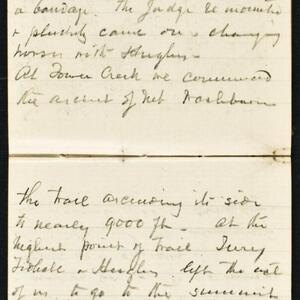 a bandage. The Judge re mounted
& pluckily came on - changing
horses with Hughes -
At Tower Creek we commenced
the ascent of Mt Washburn
the trail ascending its side
to nearly 9000 ft - at the
highest point of trail
& Hughes left the rest
of us to go to the summit